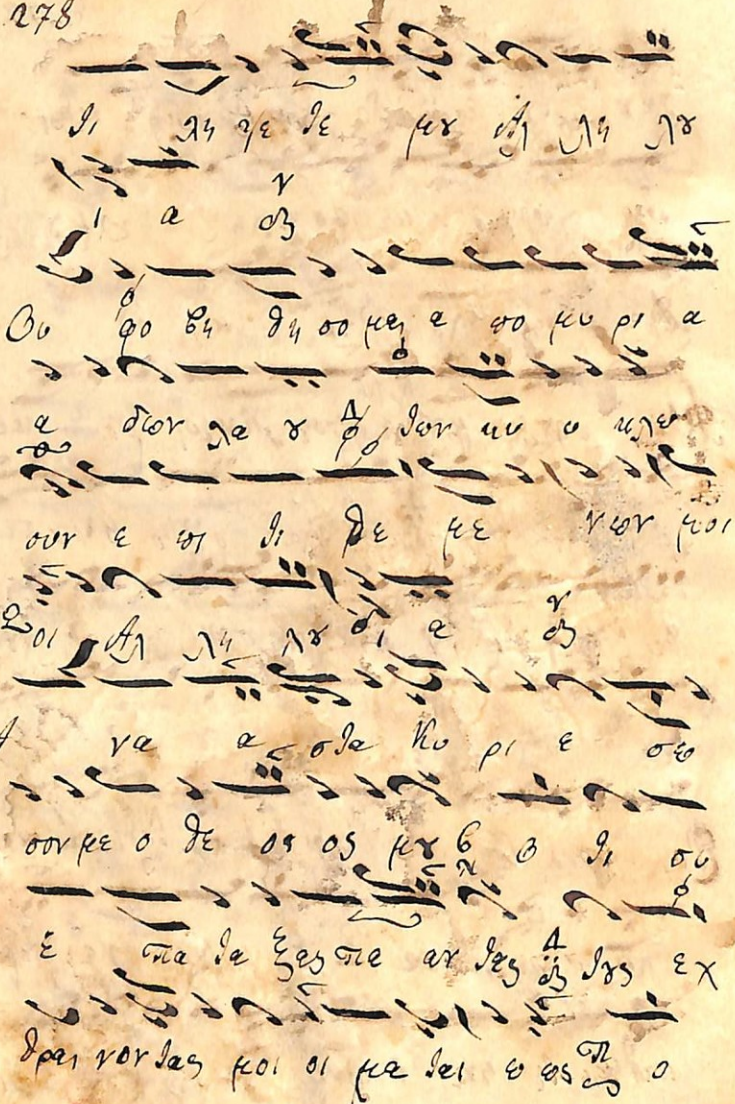 278
τι λη πτε τε μου Αλ λη λου
ι α
Ου φο βη θη σο μαι α πο μυ ρι α
α δων λα ου των κυ υ κλω
συν ε πι τι θε με νων μοι
οι Αλ λη λου ι α
να α στα Κυ ρι ε σω
σον με ο θε ος ος μου Ο τι συ
ε πα τα ξας πα αν τας τους εχ
θραι νον τας μοι οι μα ται ω ως ο